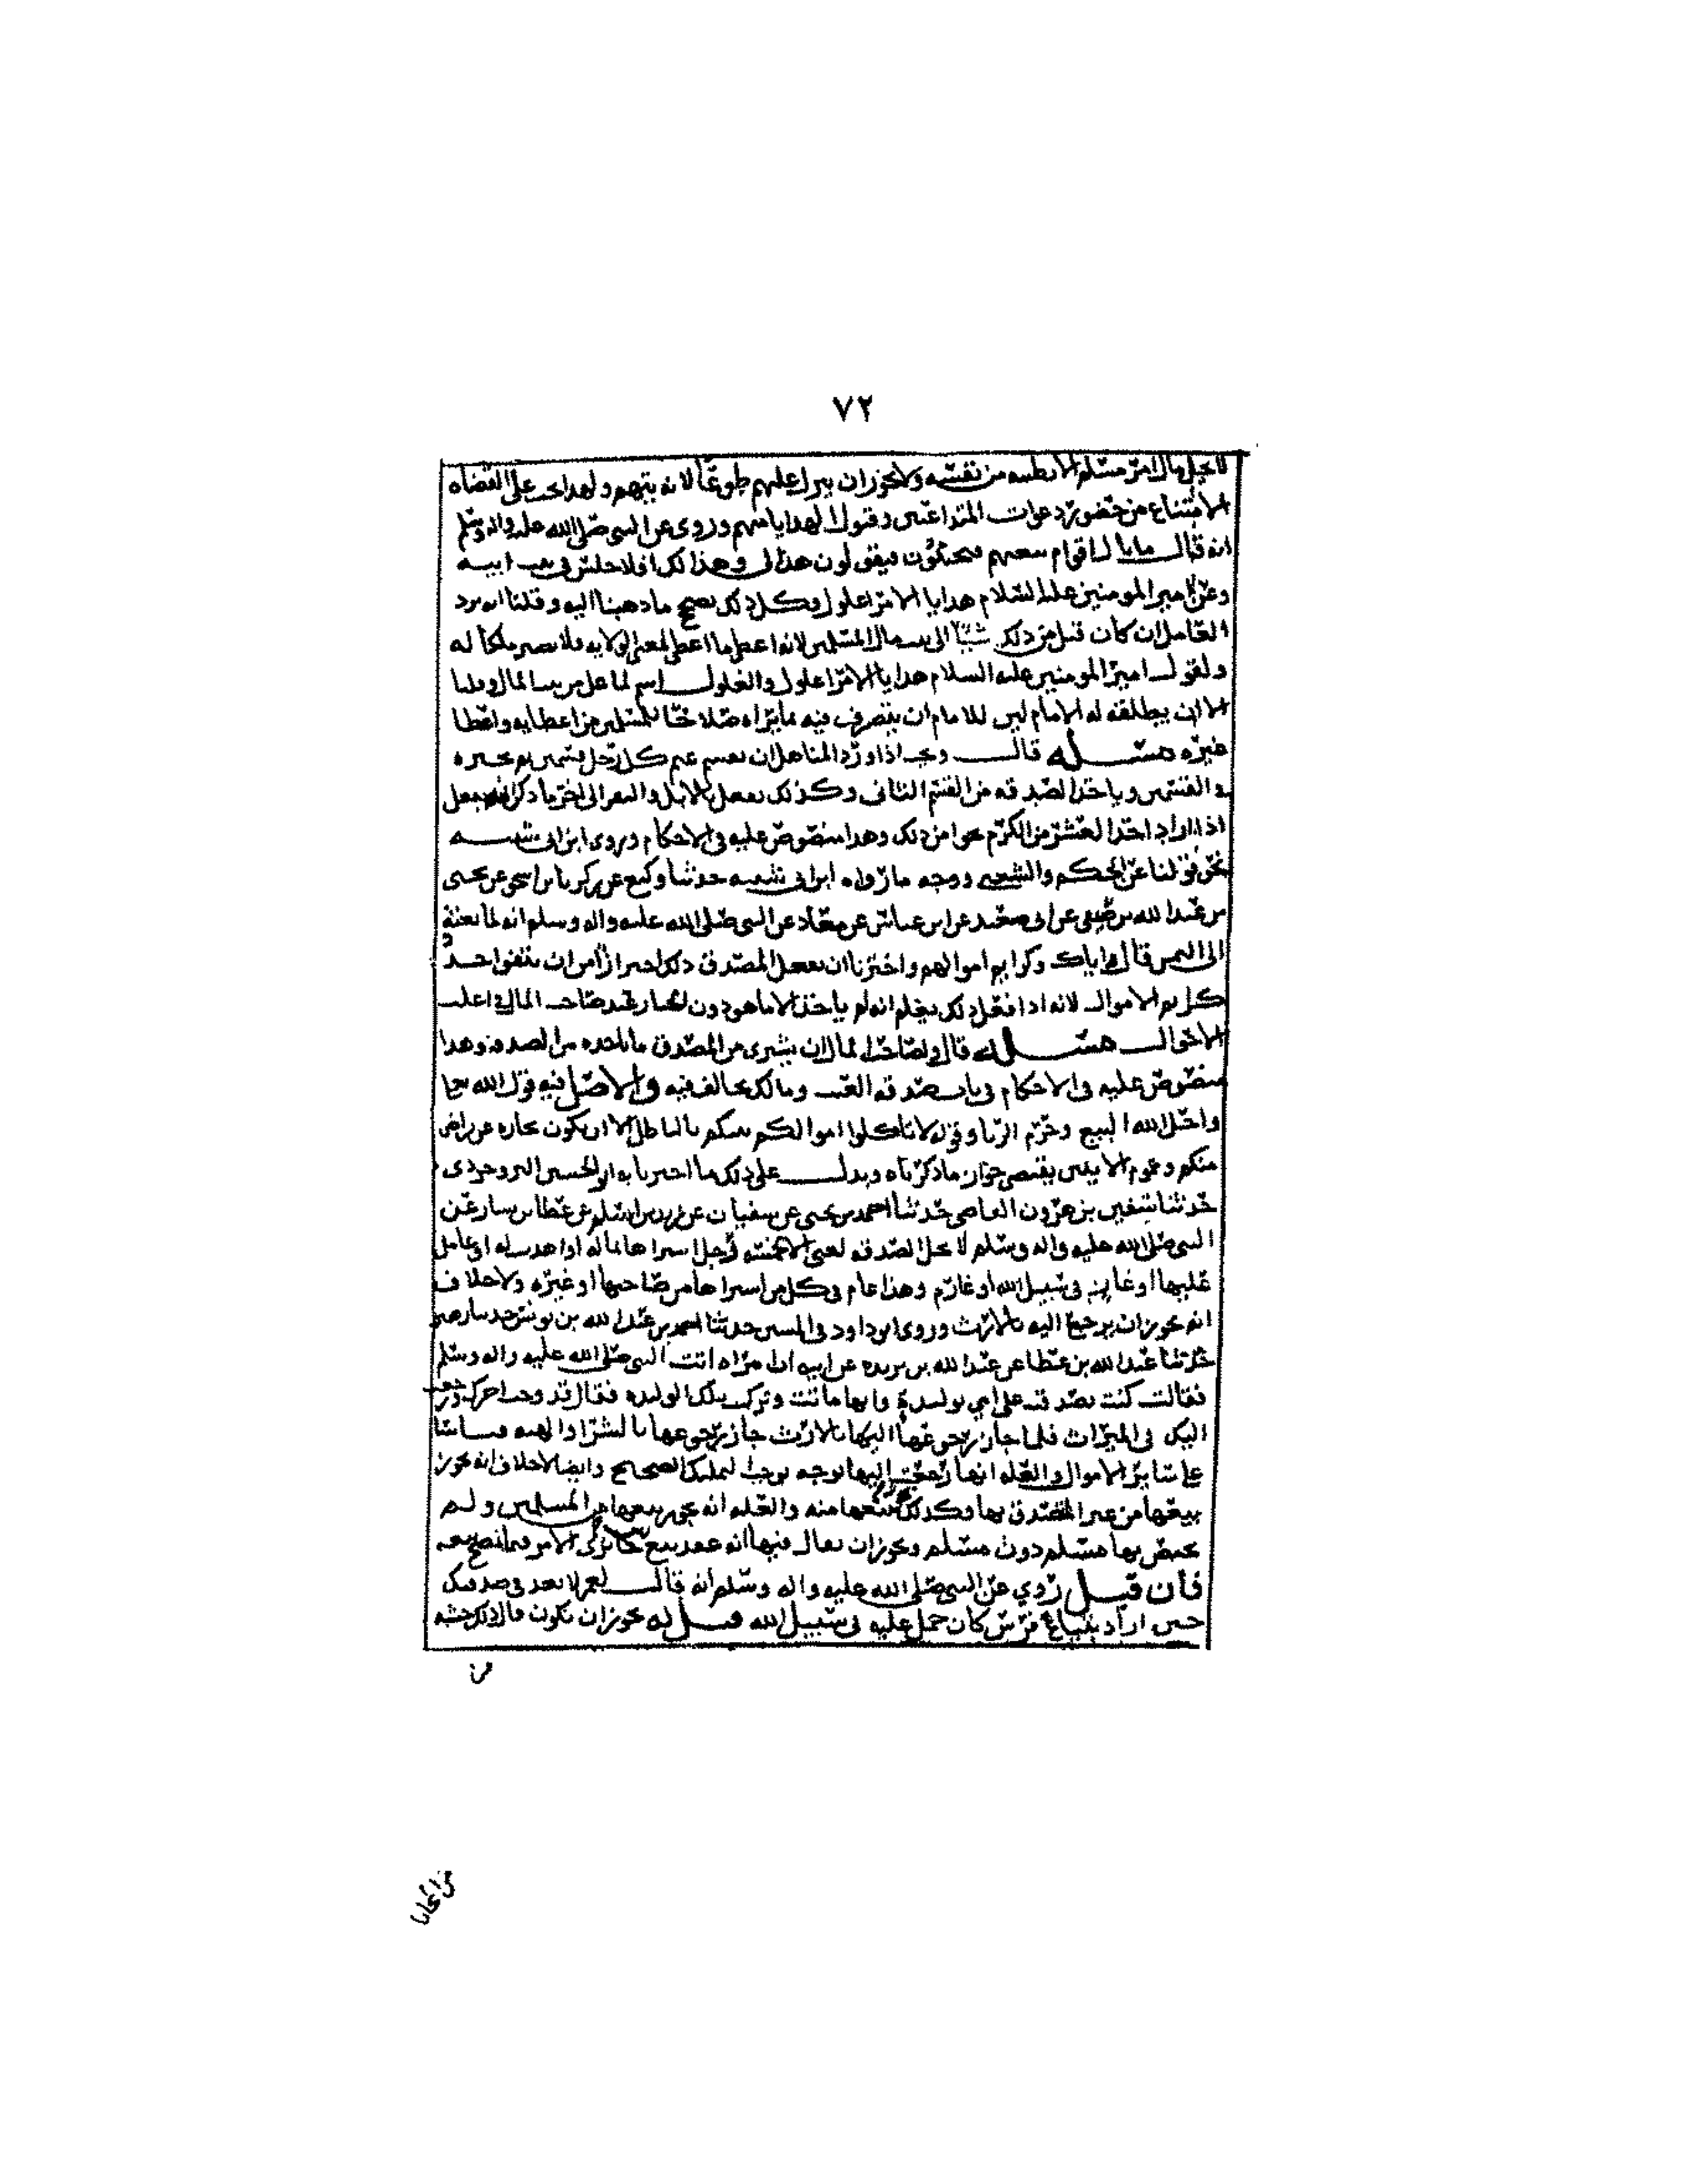 ٧٢
لا يحل مال امرئ مسلم الا بطيبه من نفسه ولا يجوز ان ينزل عليهم طوعا لانه يتهم ولهذا يجب على القضاه
الامتناع من حضور دعوات المتداعين وقبول الهدايا منهم وروى عن النبي صلى الله عليه واله وسلم
انه قال ما بال اقوام نبعثهم فيقولون هذا لي وهذا لك افلا جلس في بيت ابيه
وعن امير المومنين عليه السلام هدايا الامرا غلول وكل ذلك يصحح ما ذهبنا اليه وقلنا انه يرد
العامل ان كان قبل من ذلك شيئا الى بيت مال المسلمين لانه اعطى ما اعطى لمعنى الولايه فلا يصير ملكا له
ولقول امير المومنين عليه السلام هدايا الامرا غلول والغلول اسم لما غل من بيت المال وقلنا
الا ان يطلقه له الامام لان للامام ان يتصرف فيه بما يراه صلاحا للمسلمين من اعطايه واعطا
غيره مسئله قال ويجب اذا ورد المناهل ان يقسم غنم كل رجل قسمين ثم يخيره
في القسمين وياخذ الصدقه من القسم الثاني وكذلك يفعل بالابل والبقر الى اخر ما ذكر انه يفعل
اذا اراد اخذ العشر من الكرم نحوا من ذلك وهذا منصوص عليه في الاحكام وروى ابن ابي شيبه
نحو قولنا عن الحكم والشعبي ووجه ما رواه ابن ابي شيبه حدثنا وكيع عن زكريا بن اسحق عن يحيى
بن عبد الله بن صيفي عن ابي معبد عن ابن عباس عن معاذ عن النبي صلى الله عليه واله وسلم انه لما بعثه
الى اليمن قال اياك وكرايم اموالهم واخترنا ان يفعل المصدق ذلك احترازا من ان يتفق اخذ
كرايم الاموال لانه اذا فعل ذلك يعلم انه لم ياخذ الا ما هو دون الخيار عند صاحب المال في اغلب
الاحوال مسئله قال ولصاحب المال ان يشترى من المصدق ما ياخذه من الصدقه وهذا
منصوص عليه في الاحكام في باب صدقه الغنم ومالك يخالف فيه والاصل فيه قول الله تعالى
واحل الله البيع وحرم الربا وقوله لا تاكلوا اموالكم بينكم بالباطل الا ان تكون تجاره عن تراض
منكم وعموم الايتين يقتضي جواز ما ذكرناه ويدل على ذلك ما اخبرنا به ابو الحسين البروجردي
حدثنا سفين بن هرون القاضي حدثنا احمد بن يحيى عن سفيان عن زيد بن اسلم عن عطا بن يسار عن
النبي صلى الله عليه واله وسلم لا تحل الصدقه لغني الا لخمسه رجل اشتراها بماله او اهديت له او عامل
عليها او غاز في سبيل الله او غارم وهذا عام في كل من اشتراها من صاحبها او غيره ولا خلاف
انه يجوز ان يرجع اليه بالارث وروى ابو داود في السنن حدثنا احمد بن عبد الله بن يونس حدثنا زهير
حدثنا عبد الله بن عطا عن عبد الله بن بريده عن ابيه ان امراه اتت النبي صلى الله عليه واله وسلم
فقالت كنت تصدقت على امي بوليدة وانها ماتت وتركت تلك الوليده فقال قد وجب اجرك ورجعت
اليك في الميراث فلما جاز رجوعها اليها بالارث جاز رجوعها بالشرا والهبه قياسا
على سائر الاموال والعله انها رجعت اليها بوجه يوجب التمليك الصحيح وايضا لا خلاف انه يجوز
بيعها من غير المتصدق بها وكذلك بيعها منه والعله انه يجوز بيعها من المسلمين ولم
يختص بها مسلم دون مسلم ويجوز ان يقال فيها انه عقد بيع جائز الامر فيما يصح بيعه
فان قيل روي عن النبي صلى الله عليه واله وسلم انه قال لعمر لا تعد في صدقتك
حين اراد يبتاع فرس كان حمل عليه في سبيل الله قيل له يجوز ان يكون قال ذلك خشيه
من